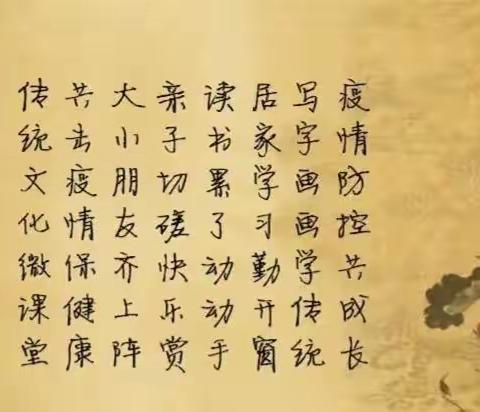 疫情防控共成长
写字画画学传统
居家学习勤开窗
读书累了动动手
亲子切磋快乐赏
大小朋友齐上阵
共击疫情保健康
传统文化微课堂